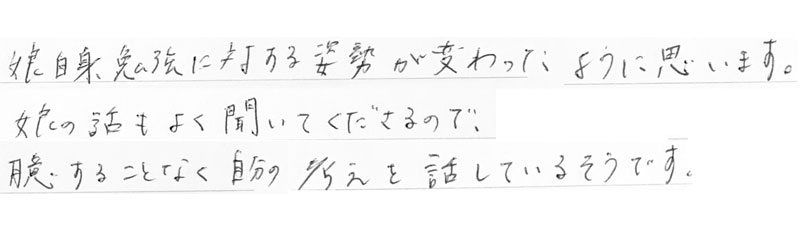 娘自身、勉強に対する姿勢が変わったように思います。
娘の話もよく聞いてくださるので、
臆することなく自分の考えを話しているそうです。